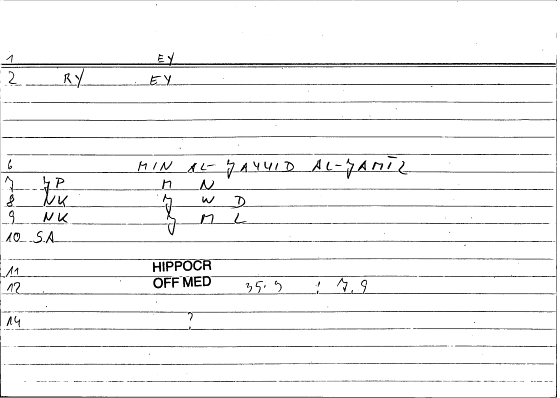 1 EY
2 RY EY
6 MIN AL-JAYYID AL-JAMĪL
7 JP M N
8 NK J W D
9 NK J M L
10 SA
11 HIPPOCR
12 OFF MED : 7.9
14 ?